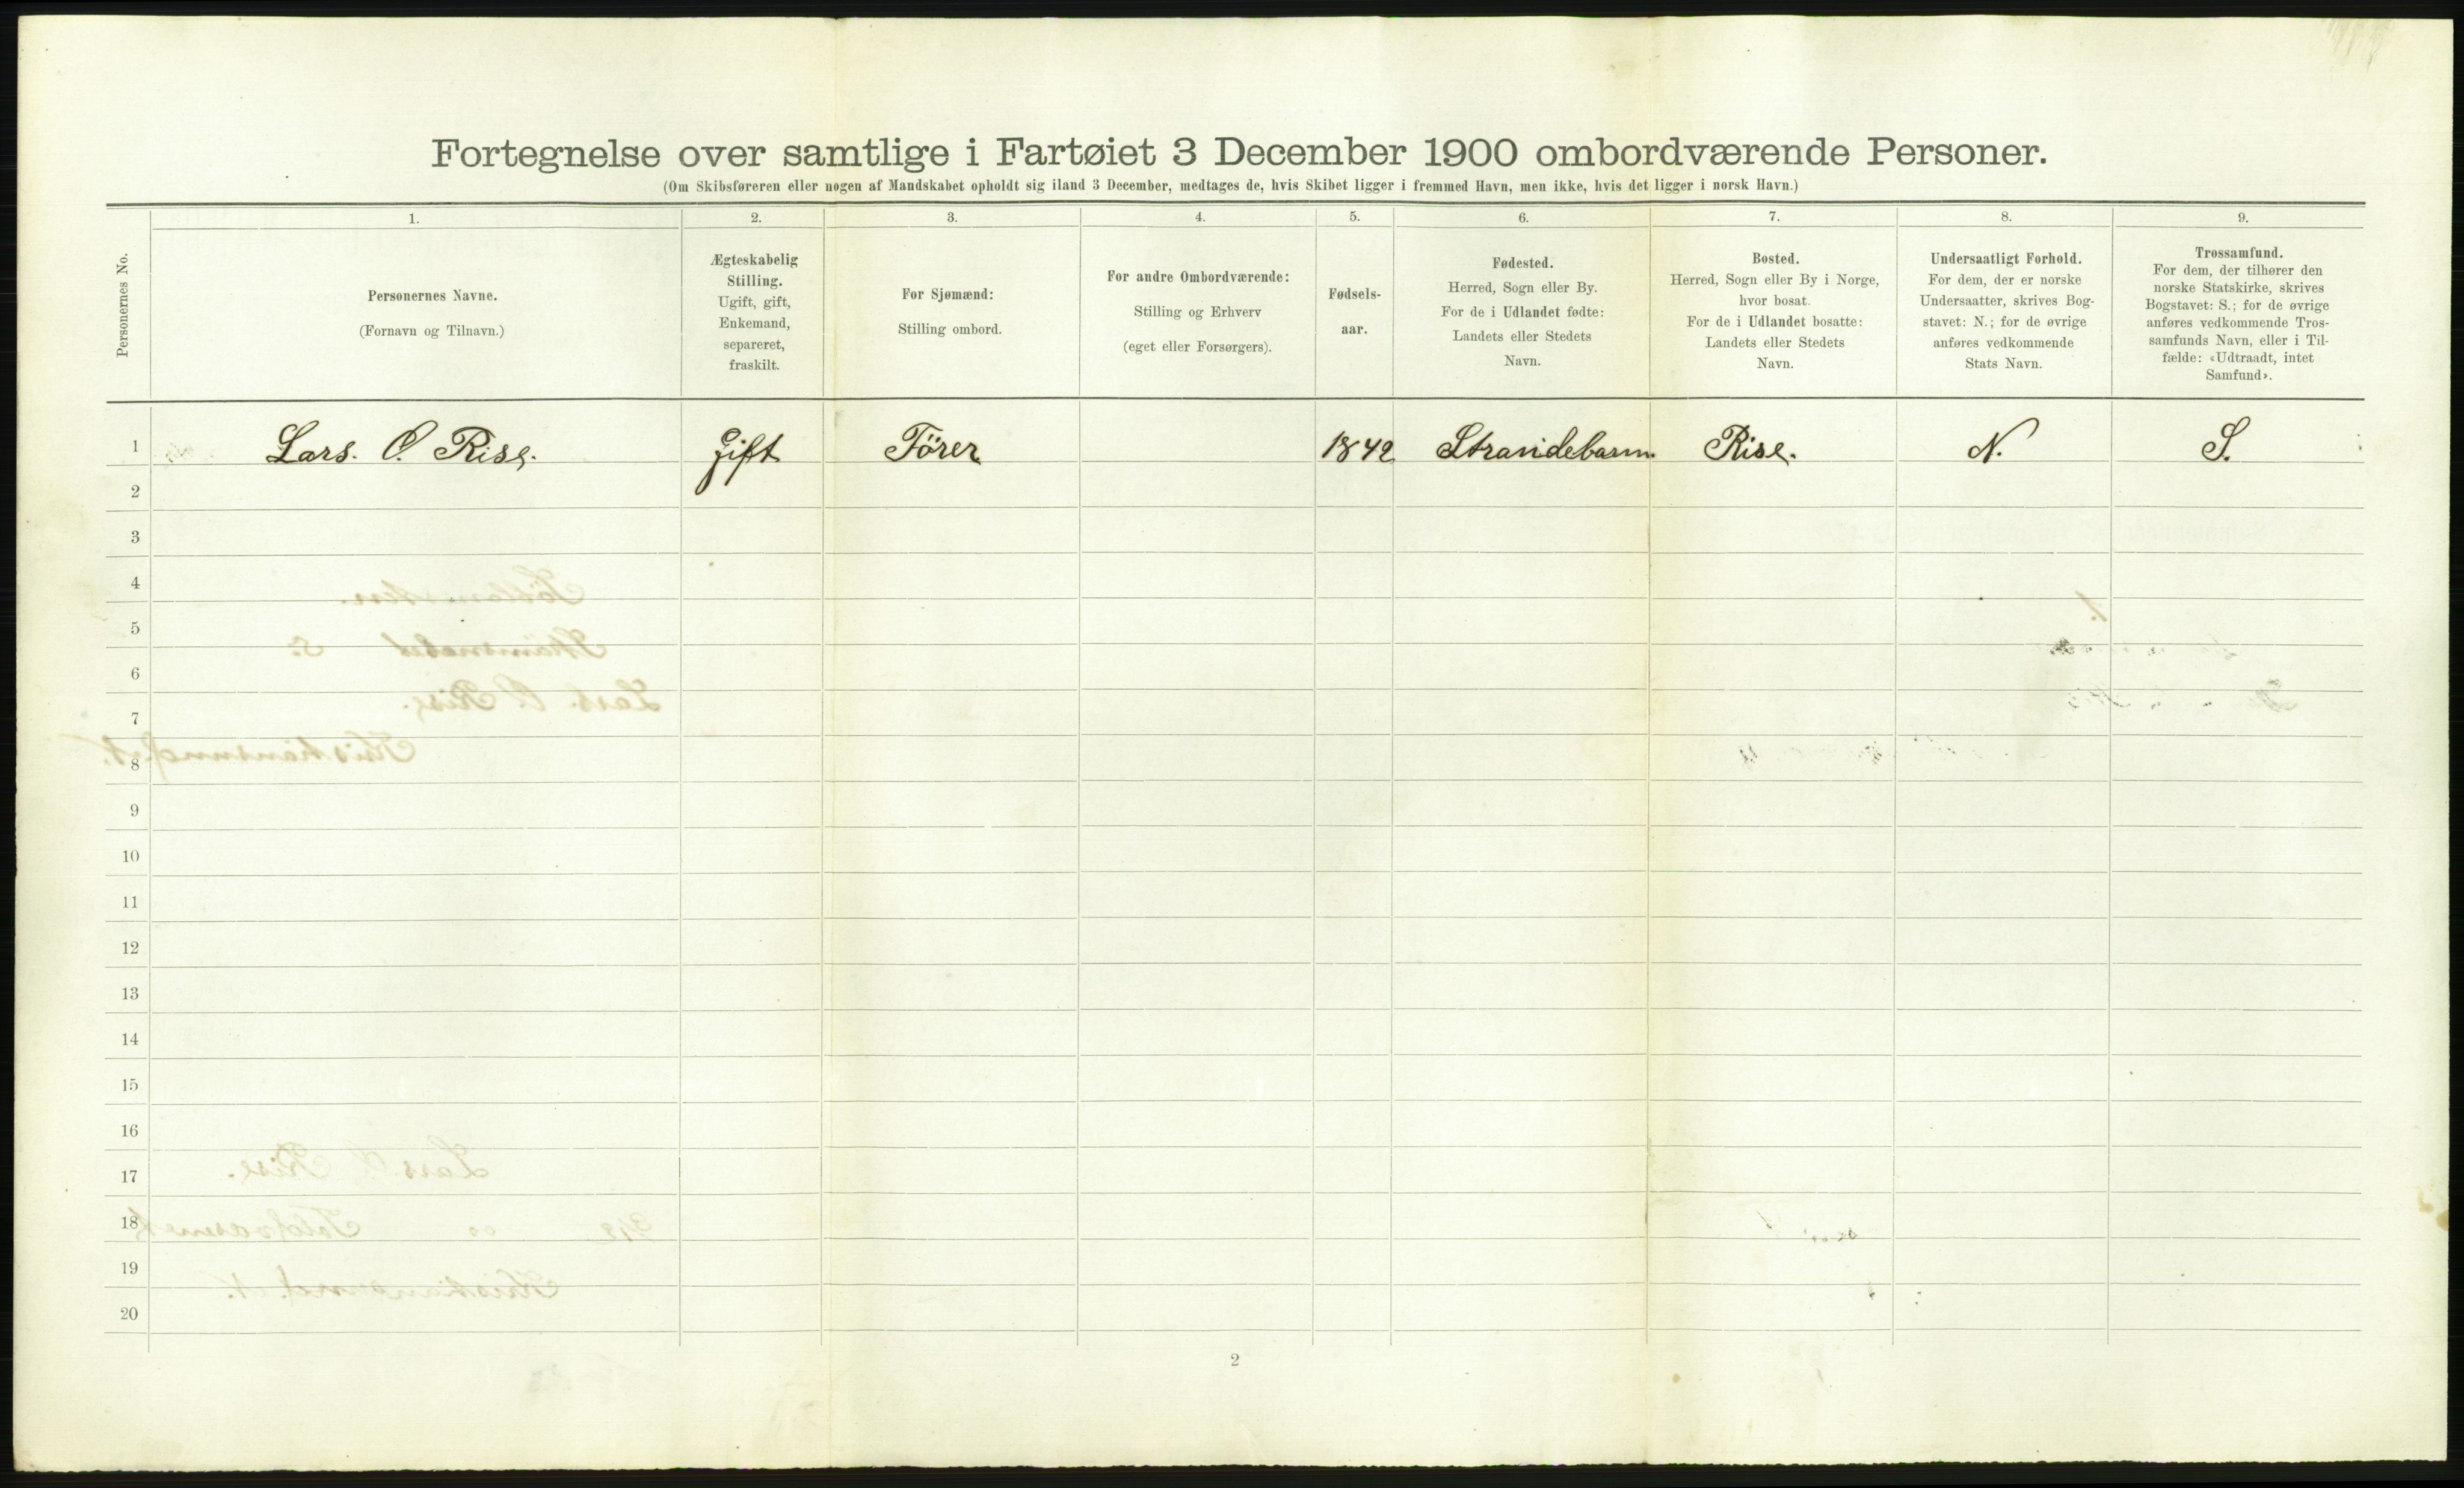 Fortegnelse over samtlige i Fartøiet 3 December 1900 ombordværende Personer.
(Om Skibsføreren eller nogen af Mandskabet opholdt sig iland 3 December, medtages de, hvis Skibet ligger i fremmed Havn, men ikke, hvis det ligger i norsk Havn.)
Personernes No.
1.
Personernes Navne.
(Fornavn og Tilnavn.)
2.
Ægteskabelig
Stilling.
Ugift, gift,
Enkemand,
separeret,
fraskilt.
3.
For Sjømænd:
Stilling ombord.
4.
For andre Ombordværende:
Stilling og Erhverv
(eget eller Forsørgers).
5.
Fødsels-
aar.
6.
Fødested.
Herred, Sogn eller By.
For de i Udlandet fødte:
Landets eller Stedets
Navn.
7.
Bosted.
Herred, Sogn eller By i Norge,
hvor bosat.
For de i Udlandet bosatte:
Landets eller Stedets
Navn.
8.
Undersaatligt Forhold.
For dem, der er norske
Undersaatter, skrives Bog-
stavet: N.; for de øvrige
anføres vedkommende
Stats Navn.
9.
Trossamfund.
For dem, der tilhører den
norske Statskirke, skrives
Bogstavet: S.; for de øvrige
anføres vedkommende Tros-
samfunds Navn, eller i Til-
fælde: «Udtraadt, intet
Samfund».
1 Lars. O. Rise. gift Förer 1842 Strandebarm. Rise. N. S.
2
3
4
5
6
7
8
9
10
11
12
13
14
15
16
17
18
19
20
2